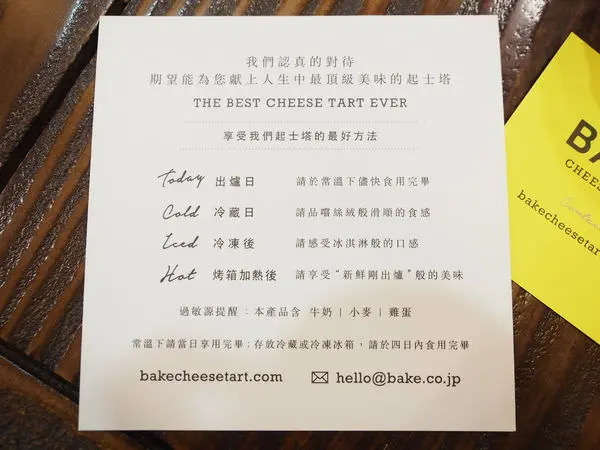 我們認真的對待
期望能為您獻上人生中最頂級美味的起士塔
THE BEST CHEESE TART EVER
享受我們起士塔的最好方法
Today 出爐日 請於常溫下儘快食用完畢
Cold 冷藏日 請品嚐絲絨般滑順的食感
Iced 冷凍後 請感受冰淇淋般的口感
Hot 烤箱加熱後 請享受“新鮮剛出爐”般的美味
過敏源提醒：本產品含 牛奶 | 小麥 | 雞蛋
常溫下請當日享用完畢；存放冷藏或冷凍冰箱，請於四日內食用完畢
bakecheesetart.com hello@bake.co.jp
BA
CHEESE
bakecheesetart